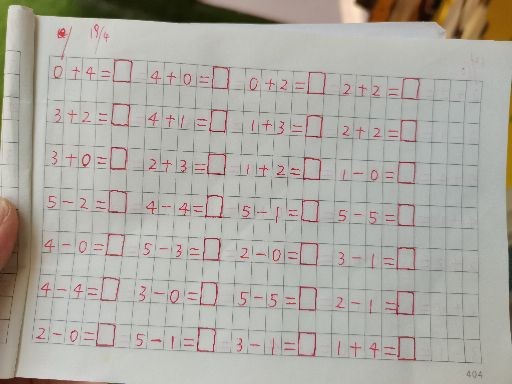 19/4
0+4=□ 4+0=□ 0+2=□ 2+2=□
3+2=□ 4+1=□ 1+3=□ 2+2=□
3+0=□ 2+3=□ 1+2=□ 1-0=□
5-2=□ 4-4=□ 5-1=□ 5-5=□
4-0=□ 5-3=□ 2-0=□ 3-1=□
4-4=□ 3-0=□ 5-5=□ 2-1=□
2-0=□ 5-1=□ 3-1=□ 1+4=□
404